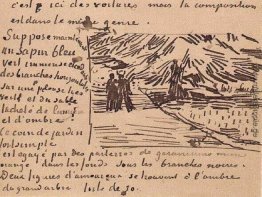 c'est ici des voilures mais la composition
est dans le même genre.
Suppose maintenant
un sapin bleu
vert immense étendant
des branches horizontales
sur une pelouse très
verte et du sable
tacheté de lumière
et d'ombre.
Ce coin de jardin
fort simple
est égayé par des parterres de géraniums mine
orange dans les fonds sous les branches noires.
Deux figures d'amoureux se trouvent à l'ombre
du grand arbre toile de 30.